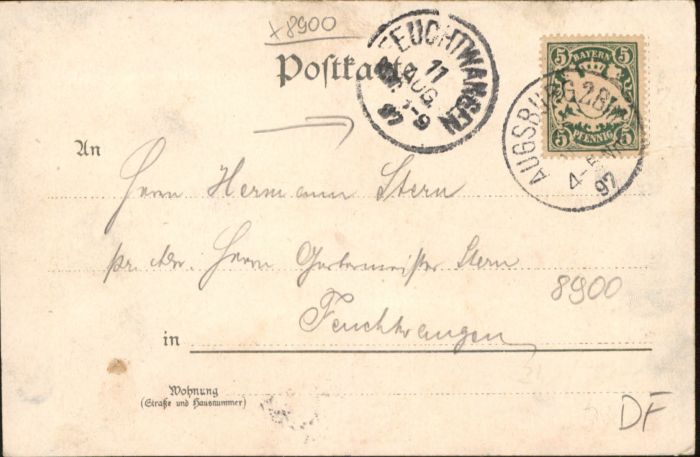 x8900
Postkarte
FEUCHTWANGEN
11
AUG.
97
5 BAYERN 5
5 PFENNIG 5
AUGSBURG
4-5
97
An
Herrn Hermann Stern
pr. Adr. Herrn Gerbermeister Stern
8900
in Feuchtwangen
Wohnung
(Straße und Hausnummer)
DF